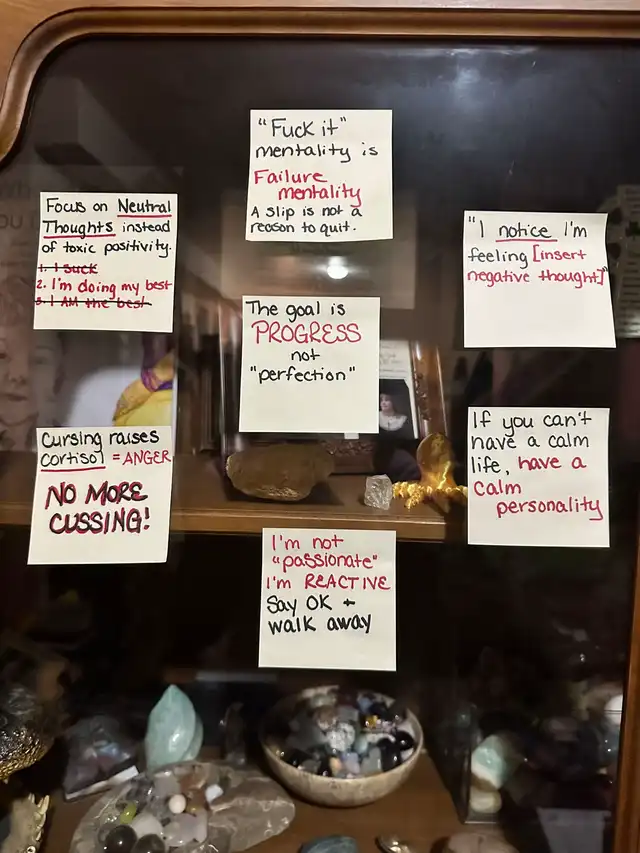 "Fuck it"
mentality is
Failure
mentality
A slip is not a
reason to quit.
Focus on Neutral
Thoughts instead
of toxic positivity.
1. I suck
2. I'm doing my best
3. I AM the best
"I notice I'm
feeling [insert
negative thought]"
The goal is
PROGRESS
not
"perfection"
Cursing raises
cortisol = ANGER
NO MORE
CUSSING!
If you can't
have a calm
life, have a
calm
personality
I'm not
"passionate"
I'm REACTIVE
Say OK +
walk away